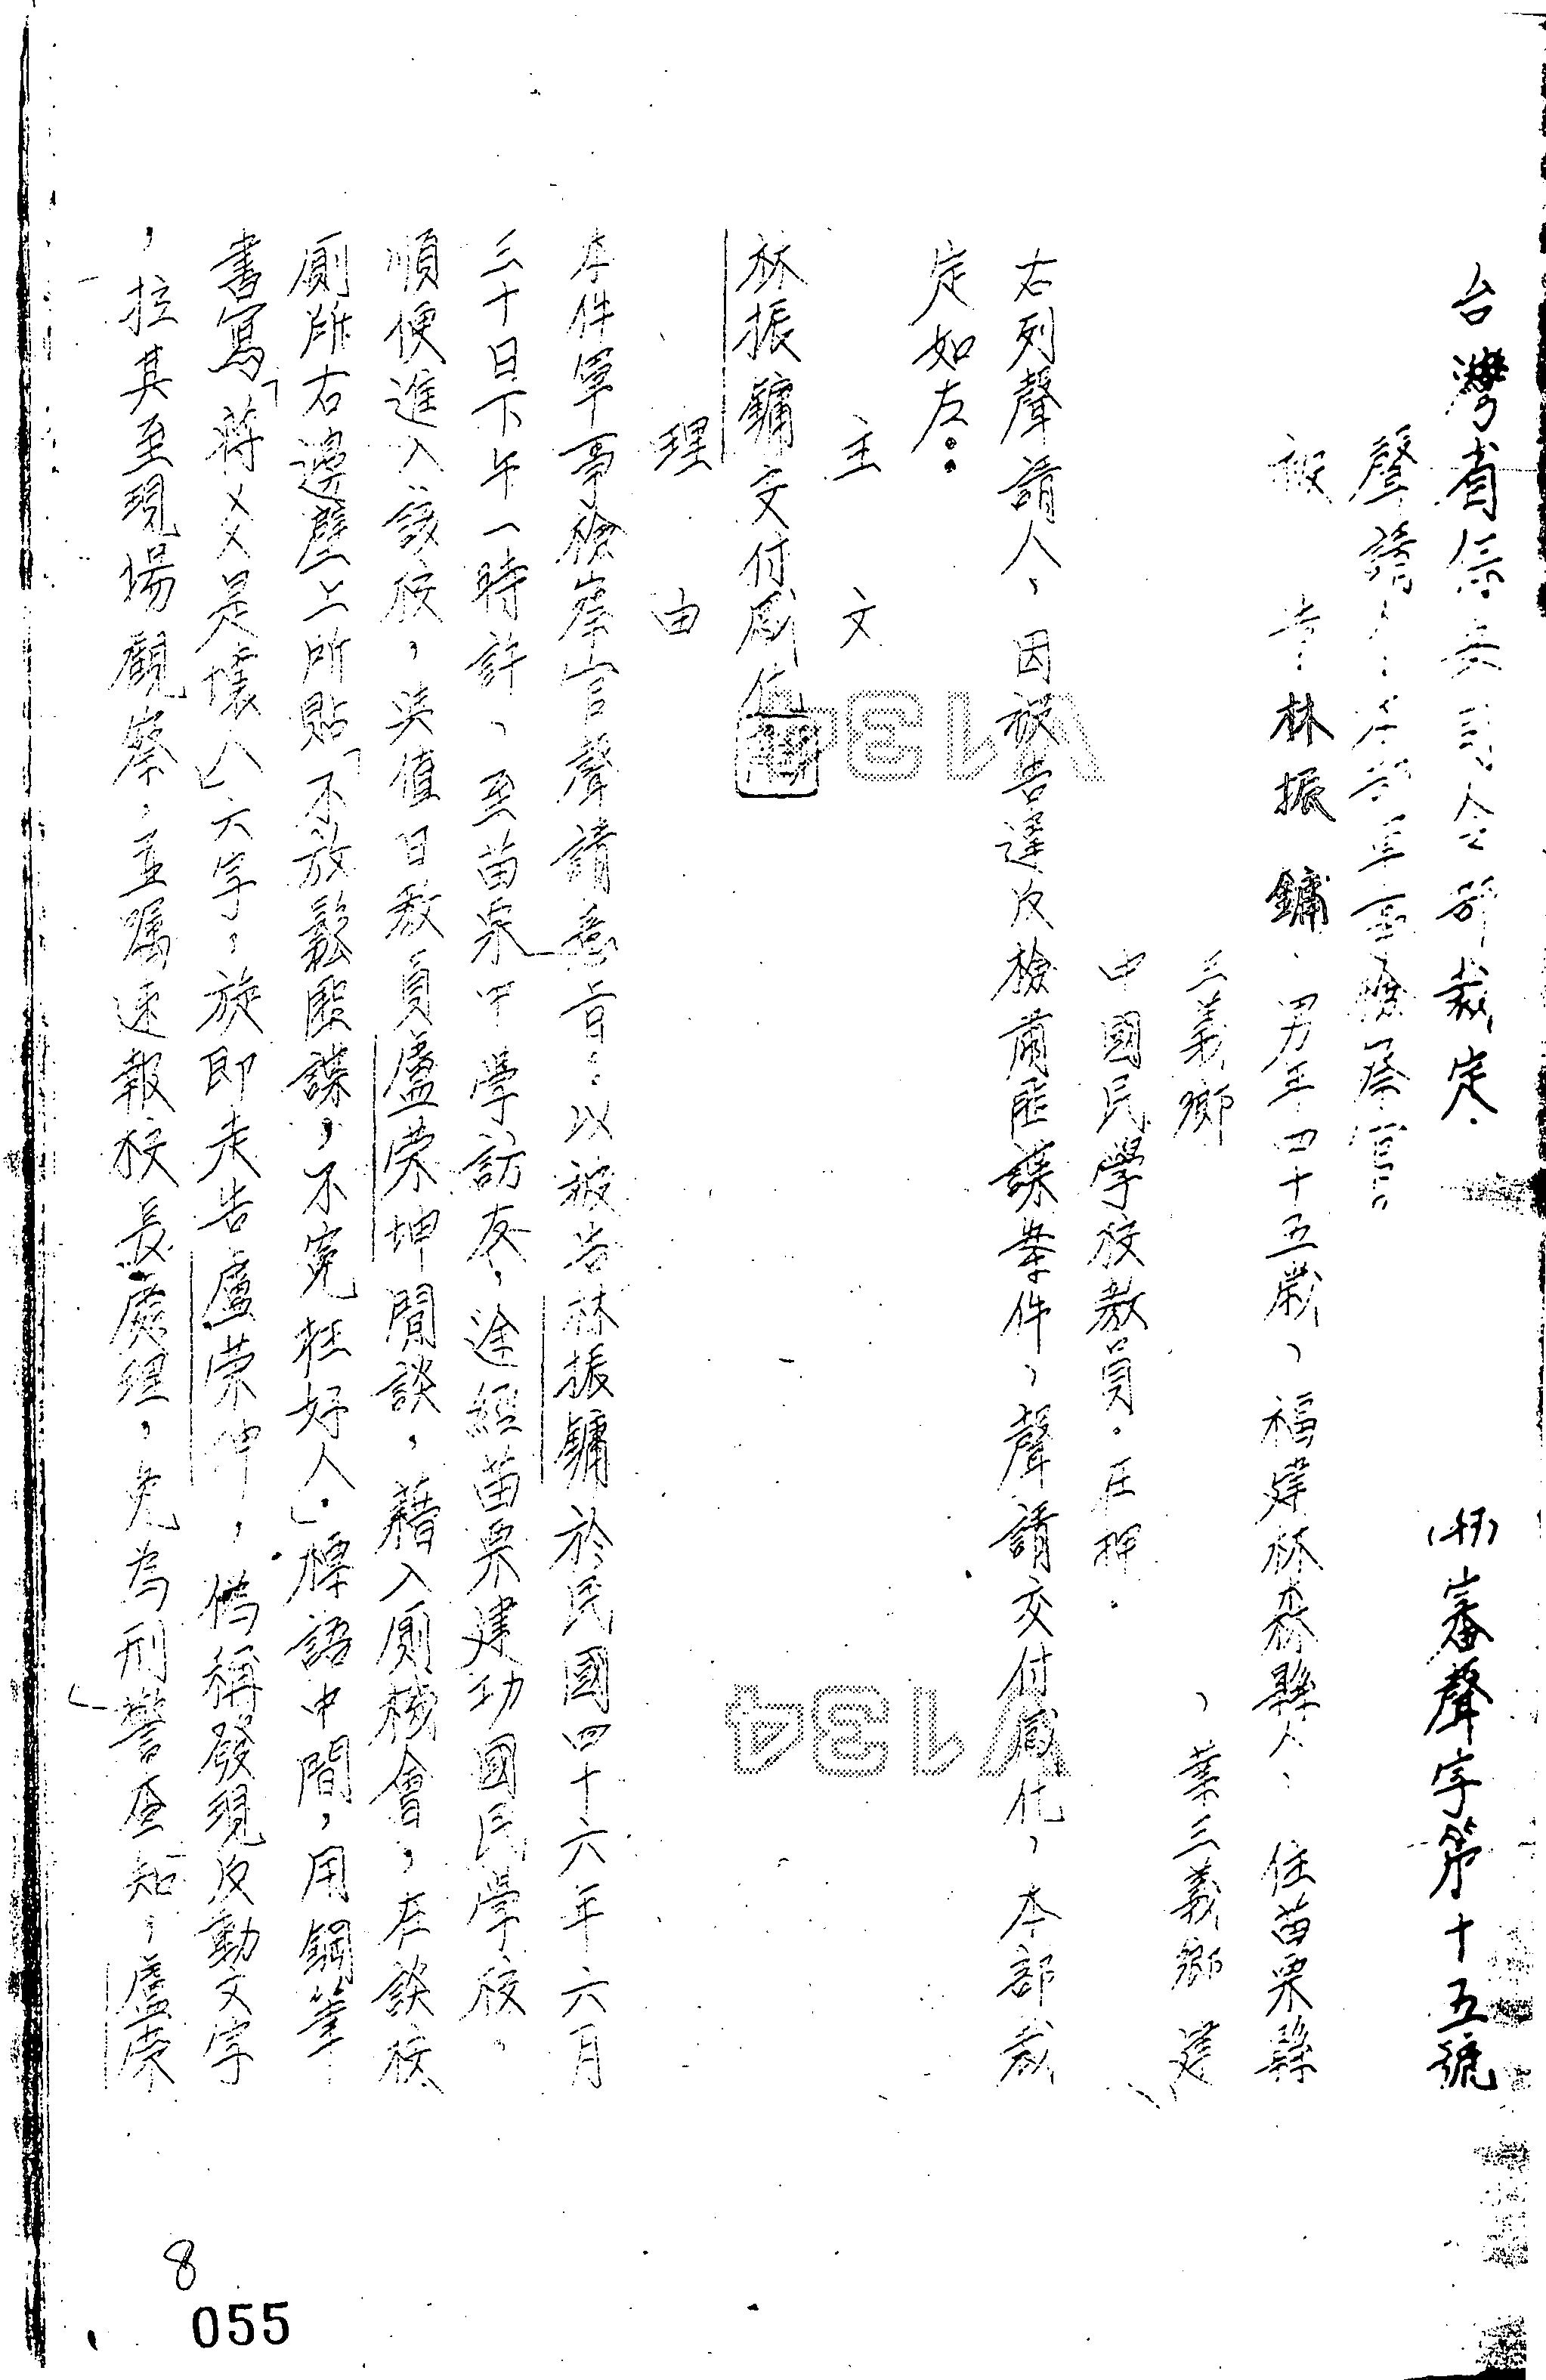 台灣省保安司令部裁定．　審聲字第十五號
聲請人：本部軍事檢察官
被　告：林振鏞．男年四十五歲、福建林森縣人、住苗栗縣
三義鄉　、業三義鄉建
中國民學校教員。在押．
右列聲請人、因被告違反檢肅匪諜案件、聲請交付感化、本部裁
定如左：
主　文
林振鏞交付感化
理　由
本件軍事檢察官聲請意旨：以被告林振鏞於民國四十六年六月
三十日下午一時許、至苗栗中學訪友，途經苗栗建功國民學校、
順便進入該校，與值日教員盧榮坤閒談，藉入廁機會，在該校
廁所右邊壁上所貼「不放鬆匪諜，不冤枉好人．」標語中間，用鋼筆
書寫「蔣××是壞人」六字，旋即走告盧榮坤，偽稱發現反動文字
，拉其至現場觀察，並囑速報校長處理，免為刑警查知，盧榮
V134
V134
8
055